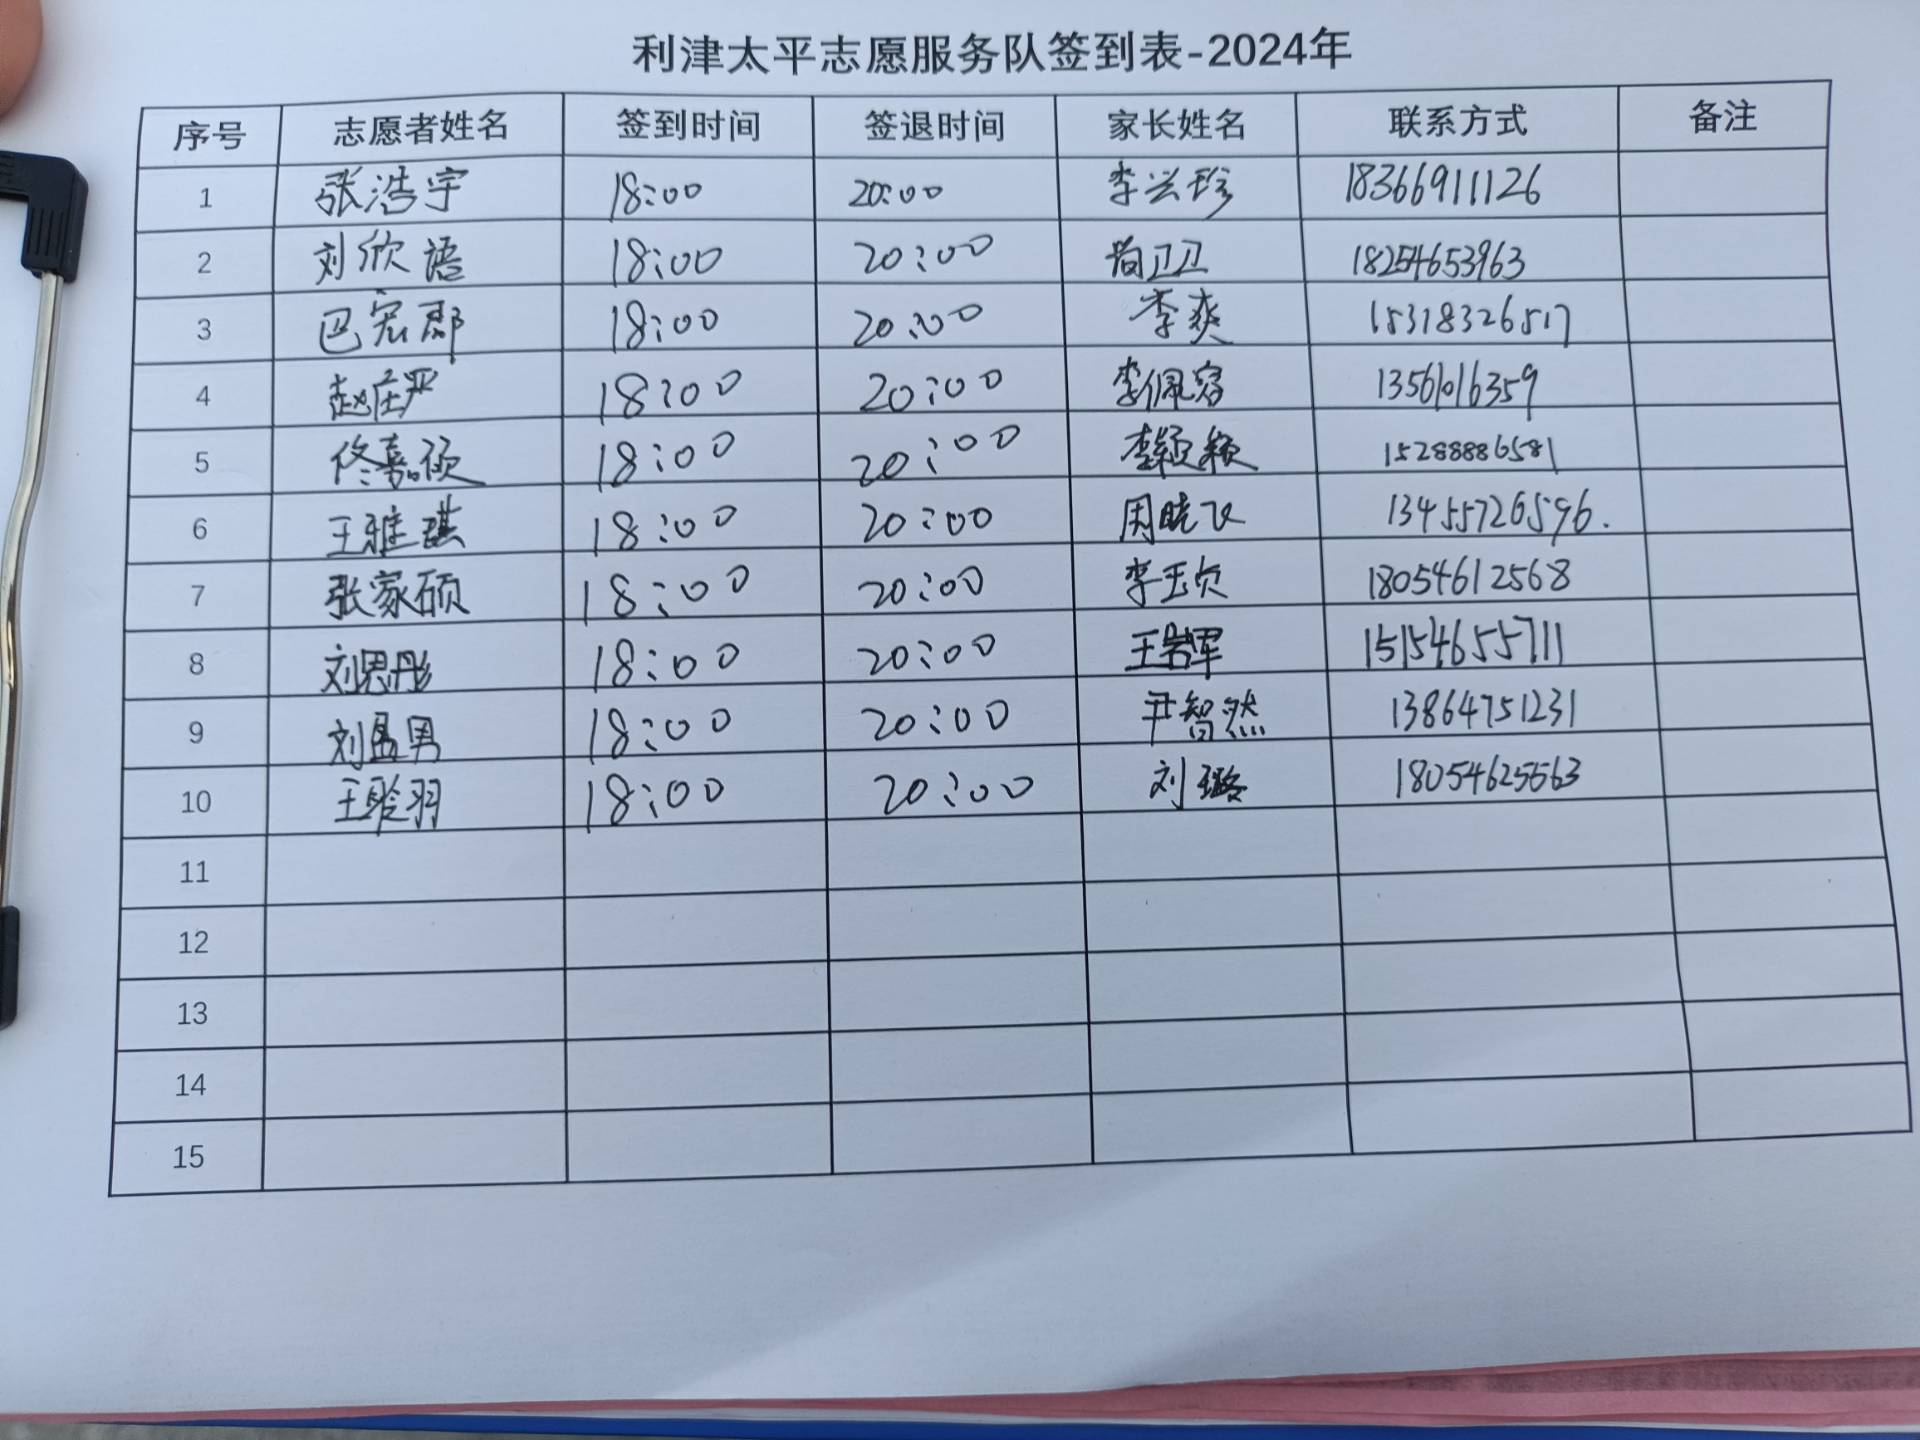 利津太平志愿服务队签到表-2024年
序号 志愿者姓名 签到时间 签退时间 家长姓名 联系方式 备注
1 张浩宇 18:00 20:00 李兴珍 18366911126
2 刘欣语 18:00 20:00 尚卫卫 18254653963
3 巴宏郡 18:00 20:00 李爽 15318326517
4 赵庄严 18:00 20:00 李佩容 13561016359
5 佟嘉硕 18:00 20:00 李颖颖 15288886581
6 王雅琪 18:00 20:00 周晓飞 13455726596.
7 张家硕 18:00 20:00 李玉贞 18054612568
8 刘思彤 18:00 20:00 王军 15154655711
9 刘孟男 18:00 20:00 尹智然 13864751231
10 王聆羽 18:00 20:00 刘璐 18054625563
11
12
13
14
15